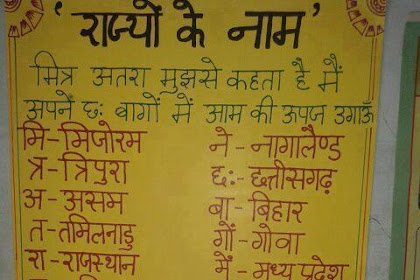 'राज्यों के नाम'
मित्र अतरा मुझसे कहता है मैं
अपने छः बागों में आम की ऊपज उगाऊँ
मि - मिजोरम
त्र - त्रिपुरा
अ - असम
त - तमिलनाडु
रा - राजस्थान
ने - नागालैण्ड
छ: - छत्तीसगढ़
बा - बिहार
गों - गोवा
में - मध्य प्रदेश